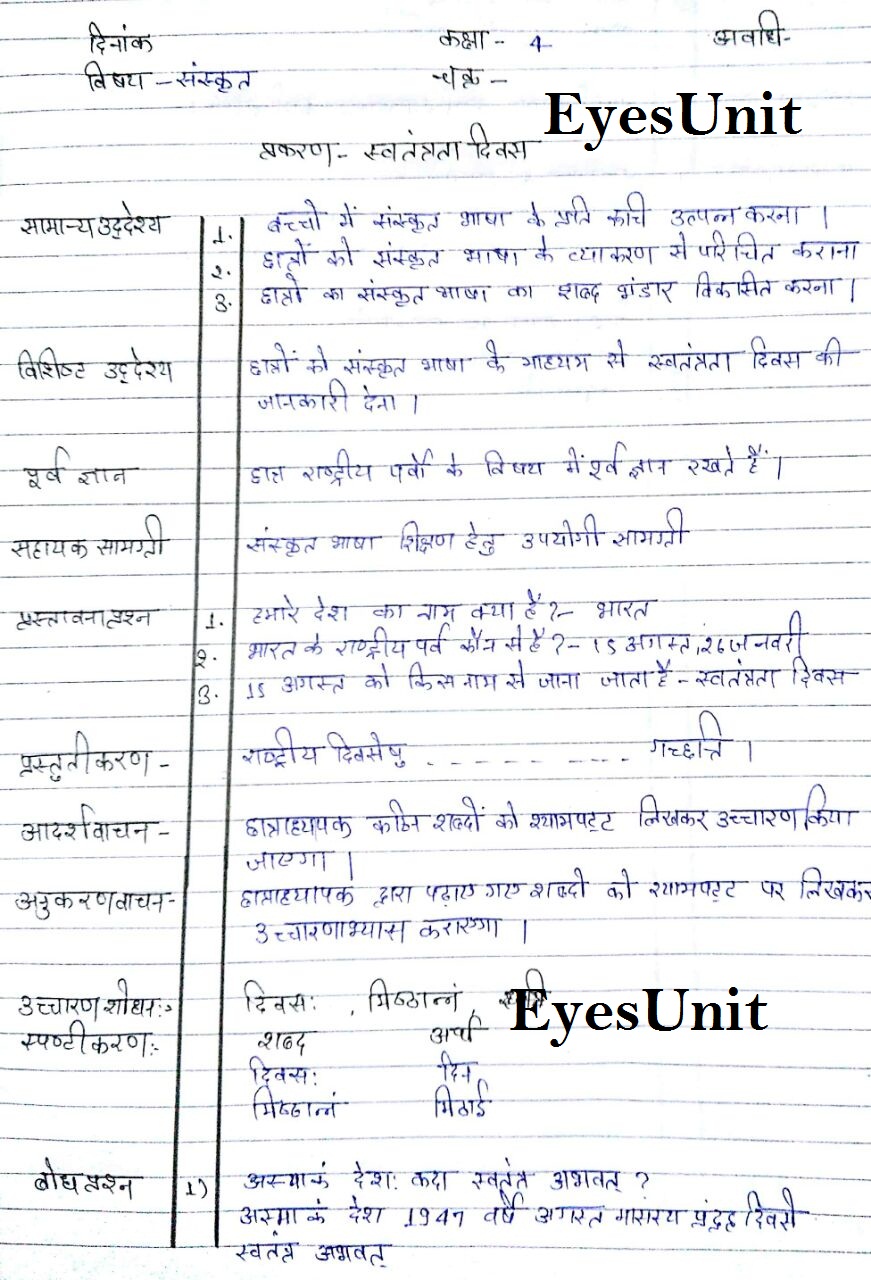 दिनांक कक्षा - 4 अवधि-
विषय - संस्कृत चक्र -
EyesUnit
प्रकरण - स्वतंत्रता दिवस
सामान्य उद्देश्य 1. बच्चो में संस्कृत भाषा के प्रति रूचि उत्पन्न करना ।
2. छात्रों को संस्कृत भाषा के व्याकरण से परिचित कराना
3. छात्रो का संस्कृत भाषा का शब्द भंडार विकासित करना ।
विशिष्ट उद्देश्य छात्रों को संस्कृत भाषा के माध्यम से स्वतंत्रता दिवस की
जानकारी देना ।
पूर्व ज्ञान छात्र राष्ट्रीय पर्वो के विषय में पूर्व ज्ञान रखते हैं ।
सहायक सामग्री संस्कृत भाषा शिक्षण हेतु उपयोगी सामग्री
प्रस्तावना प्रश्न 1. हमारे देश का नाम क्या है ?- भारत
2. भारत के राष्ट्रीय पर्व कौन से है ?- 15 अगस्त, 26 जनवरी
3. 15 अगस्त को किस नाम से जाना जाता है - स्वतंत्रता दिवस
प्रस्तुतीकरण - राष्ट्रीय दिवसेषु - - - - - - - - - गच्छन्ति ।
आदर्शवाचन - छात्राध्यपक कठिन शब्दों को श्यामपट्ट लिखकर उच्चारण किया
जाएगा ।
अनुकरणवाचन- छात्राध्यापक द्वारा पढ़ाए गए शब्दो को श्यामपट्ट पर लिखकर
उच्चारणाभ्यास कराएगा ।
उच्चारण शोधन :- दिवस: , मिष्ठान्नं ,
EyesUnit
स्पष्टीकरण:- शब्द अर्थ
दिवस: दिन
मिष्ठान्नं मिठाई
बोध प्रश्न 1) अस्माकं देश: कदा स्वतंत्र अभवत् ?
अस्माकं देश 1947 वर्षे अगस्त मासस्य पंद्रह दिवसे
स्वतंत्र अभवत्